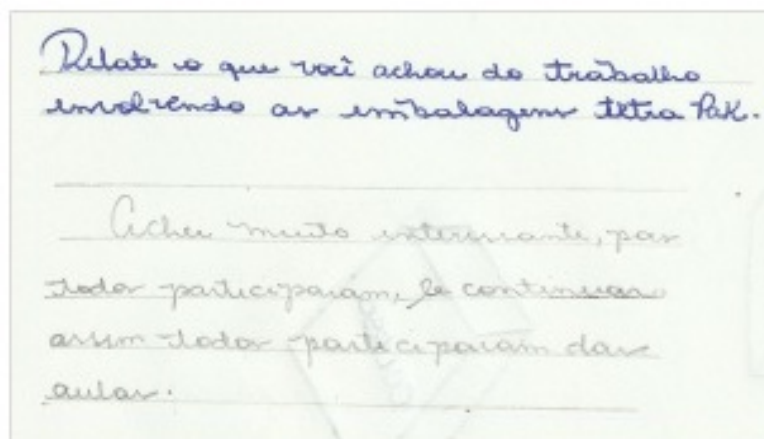 Relate o que você achou do trabalho
envolvendo as embalagens tetra Pak.
Achei muito interessante, pois
todos participaram, se continuar
assim todos participaram das
aulas.